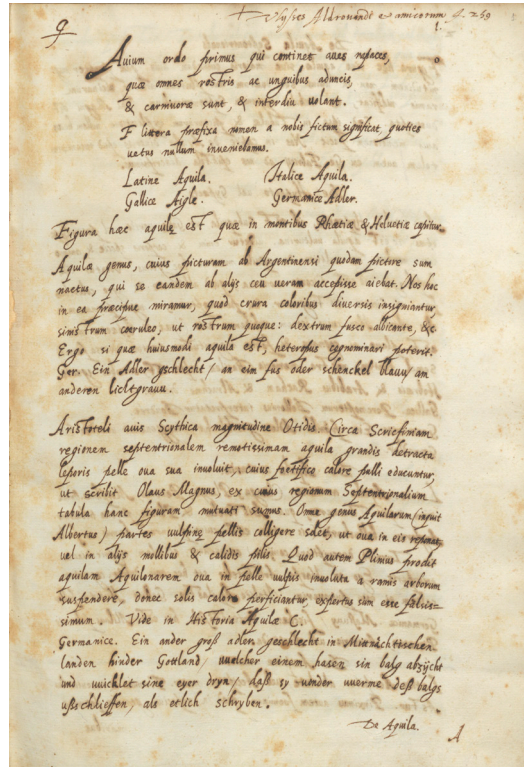 Ulysses Aldrovandi & amicorum f. 249
1.
Avium ordo primus qui continet aues rapaces,
quæ omnes rostris ac unguibus aduncis,
& carnivoræ sunt, & interdiu volant.
F littera præfixa nomen a nobis fictum significat, quoties
uetus nullum inveniebamus.
Latine Aquila. Italice Aquila.
Gallice Aigle. Germanice Adler.
Figura hæc aquilę est quæ in montibus Rhætiæ & Helvetiæ capitur.
Aquilæ genus, cuius picturam ab Argentinensi quodam pictore sum
nactus, qui se eandem ab alijs ceu veram accepisse aiebat. Nos hoc
in ea præcipue miramur, quod crura coloribus diversis insigniantur,
sinistrum cœruleo, ut rostrum quoque: dextrum fusco albicante, &c.
Ergo si quæ huiusmodi aquila est, heteropus cognominari poterit.
Ger. Ein Adler gschlecht / an eim fus oder schenckel blauw / am
anderen liechtgrauw.
Aristoteli auis Scythica magnitudine Otidis. Circa Scricfiniam
regionem septentrionalem remotissimam aquila grandis detracta
leporis pelle oua sua inuoluit, cuius foetifico calore pulli educuntur,
ut scribit Olaus Magnus, ex cuius regionum Septentrionalium
tabula hanc figuram mutuati sumus. Omne genus Aquilarum (inquit
Albertus) partes uulpinę pellis colligere solet, ut oua in eis reponat,
uel in alijs mollibus & calidis pilis. Quod autem Plinius prodit
aquilam Aquilonarem oua in pelle uulpis inuoluta a ramis arborum
suspendere, donec solis calore perficiantur, expertus sum esse falsis-
simum. Vide in Historia Aquilæ C.
Germanice. Ein ander groß adler geschlecht in Mitnächtischen
landen hinder Gottland / wwelcher einem hasen sin balg abzücht
und wicklet sine eyer dryn / daß sy vonder wwerme deß balgs
ußschlieffen / als etlich schryben.
De Aquila.
A